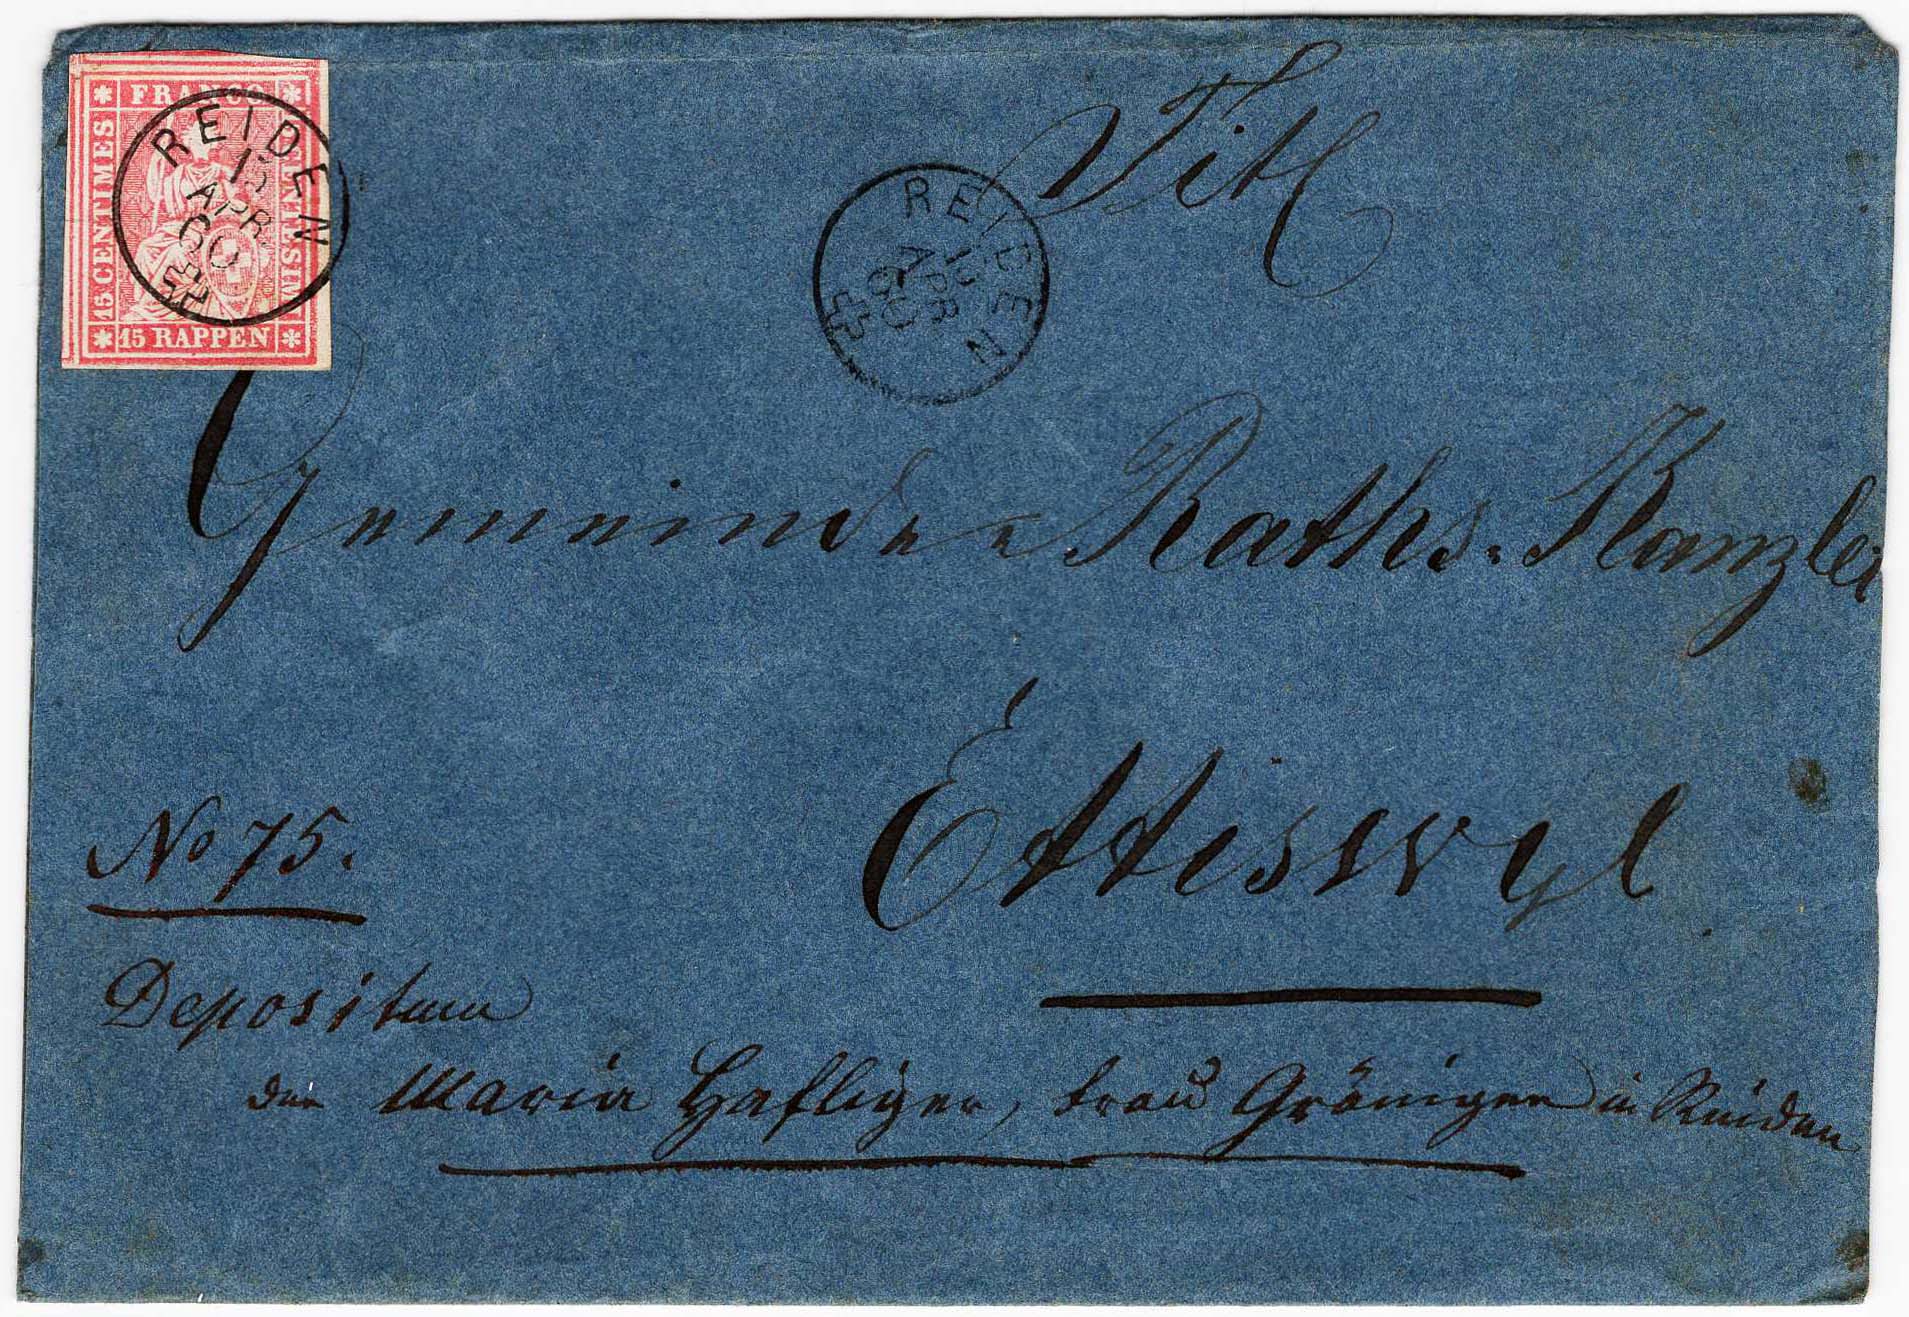 FRANCO
15 CENTIMES
CENTESIMI
15 RAPPEN
REIDEN
APR
60
REIDEN
APR
60
Titl
Gemeinde=Raths=Kanzlei
Ettiswyl
No 75.
Depositum
der Maria Hafliger, Frau Gröniger in Reiden